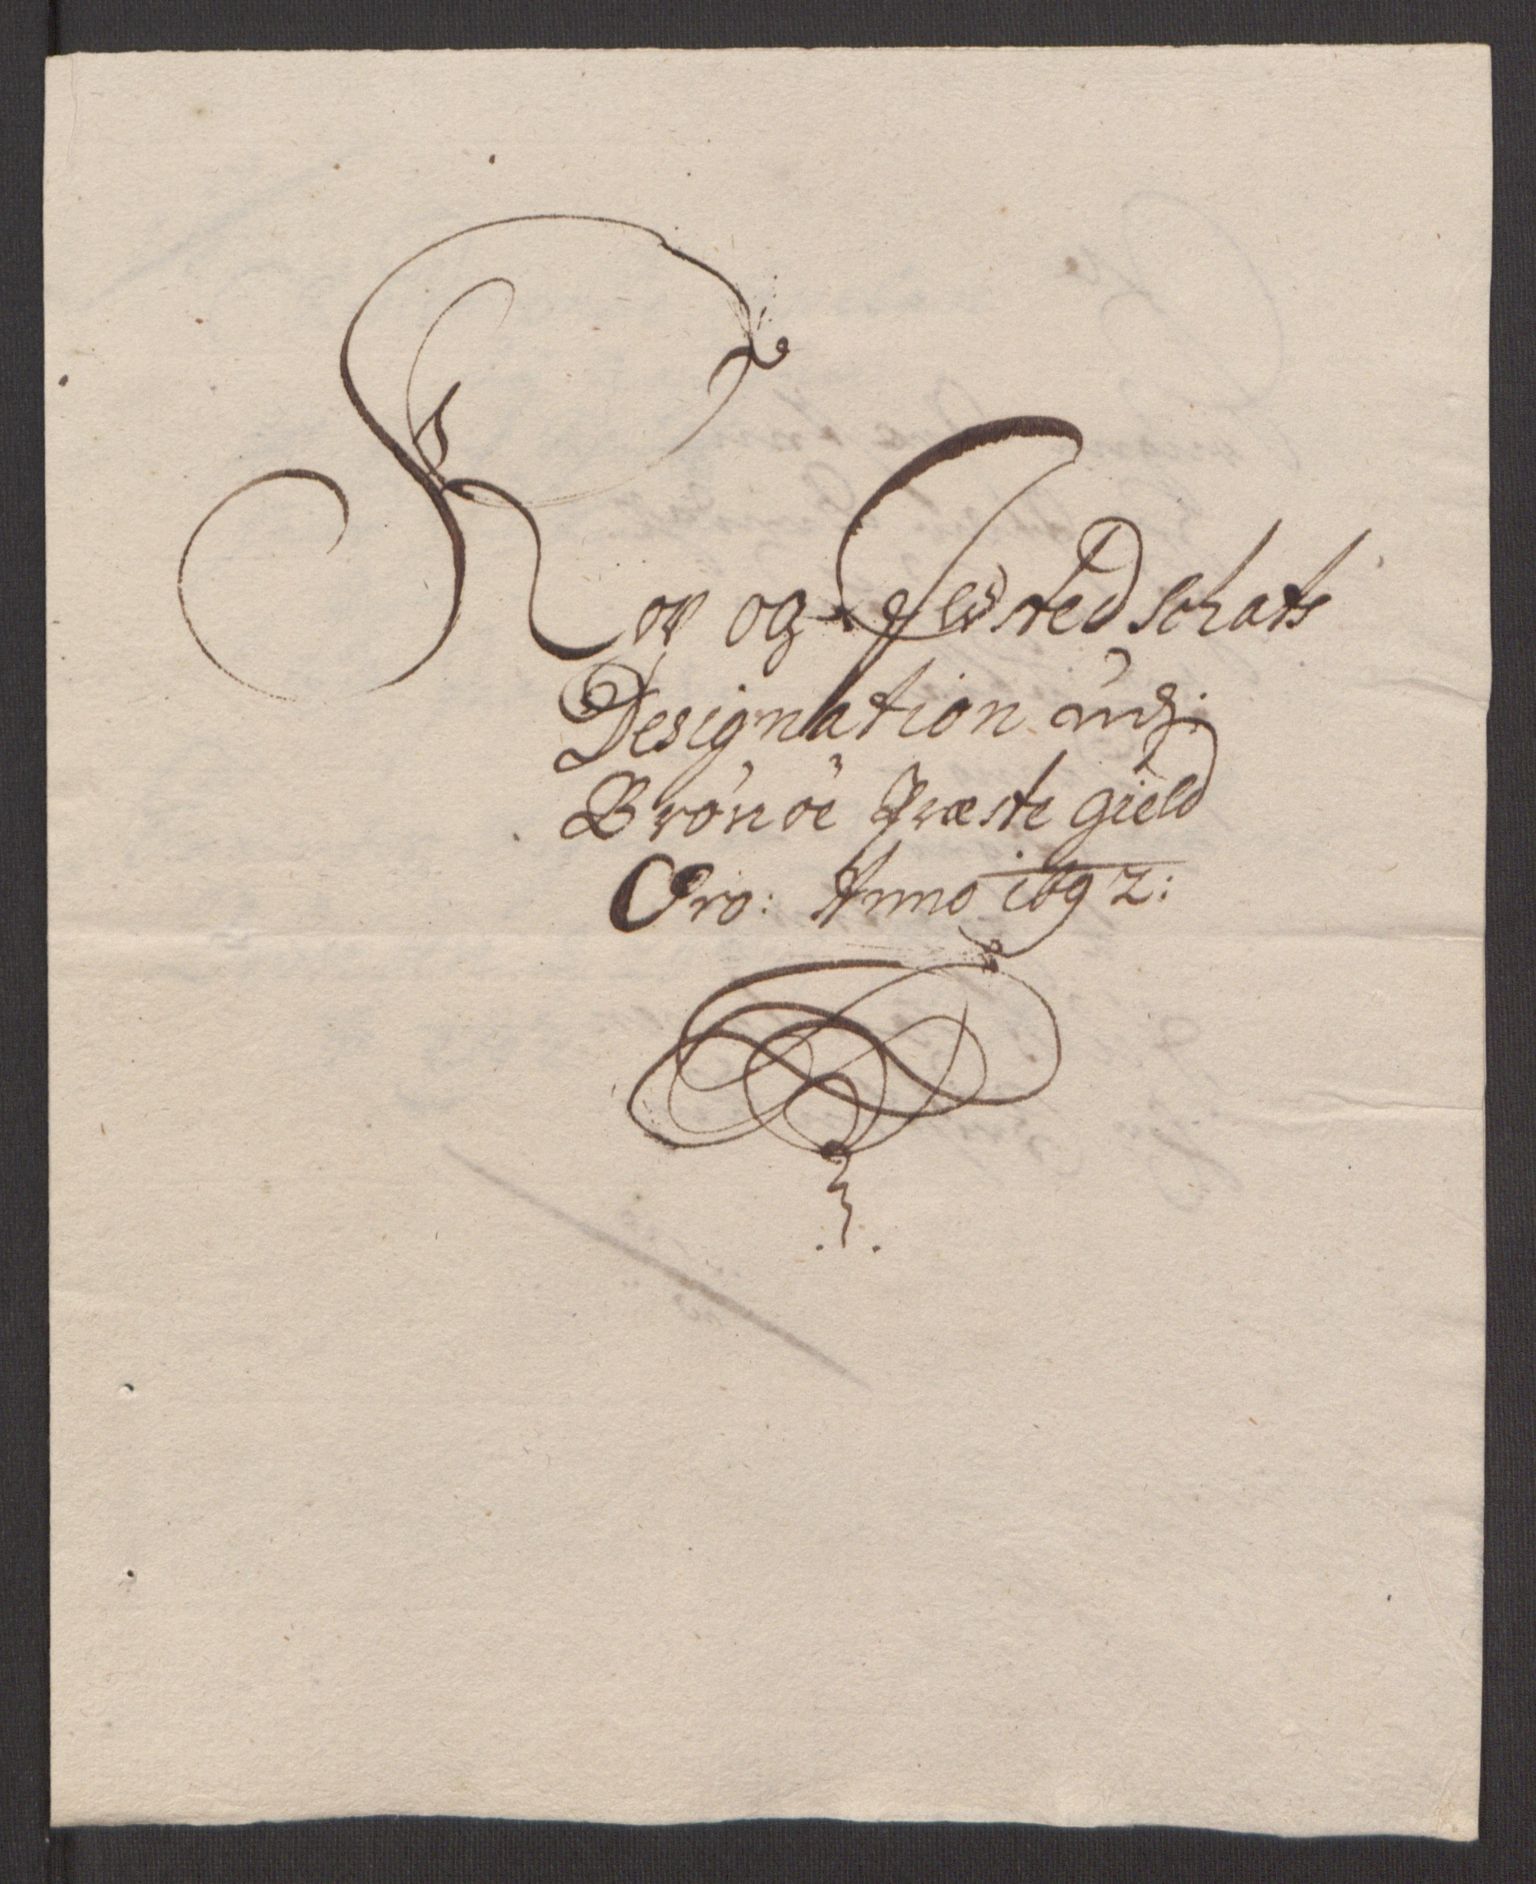 Kop og Ildsted schats
Designation udj
Brönöe Præste gield
Pro: Anno 1692: